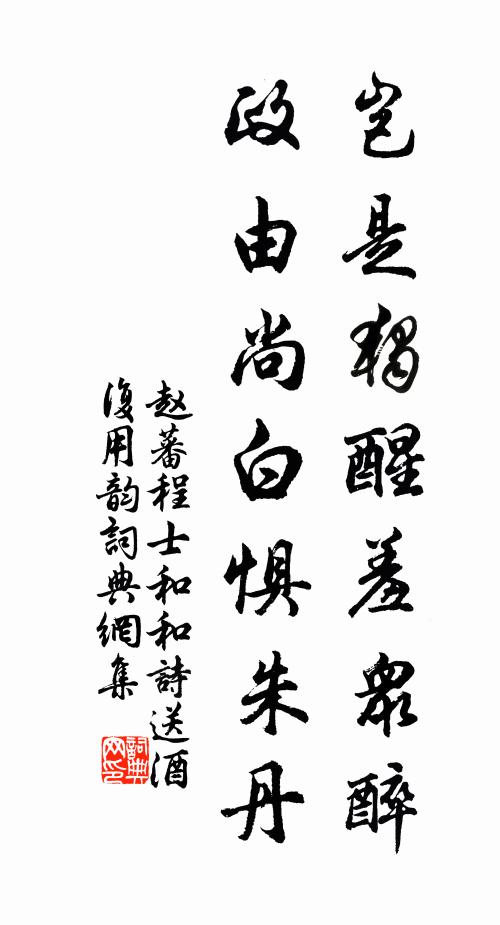 岂是獨醒羞衆醉
政由尚白惧朱丹
赵蕃程士和和詩送酒
復用韵詞典網集
詞典